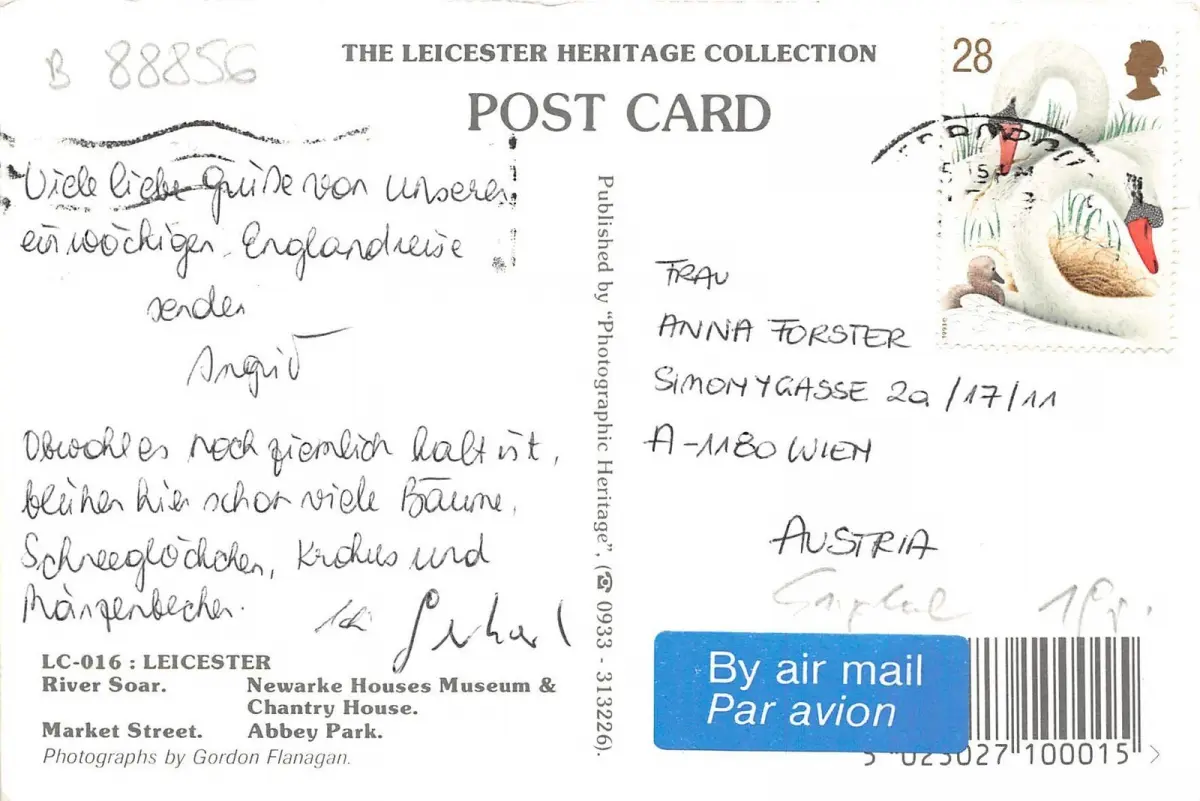 B 88856
THE LEICESTER HERITAGE COLLECTION
POST CARD
28
Viele liebe Grüße von unserer
einwöchigen Englandreise
senden
Ingrid
Obwohl es noch ziemlich kalt ist,
blühen hier schon viele Bäume,
Schneeglöckchen, Krokus und
Märzenbecher.
Gerhard
LC-016 : LEICESTER
River Soar. Newarke Houses Museum &
Chantry House.
Market Street. Abbey Park.
Photographs by Gordon Flanagan.
Published by "Photographic Heritage", (☎ 0933 - 313226).
FRAU
ANNA FORSTER
SIMONYGASSE 2a/17/11
A-1180 WIEN
AUSTRIA
England
By air mail
Par avion
5 023027 100015 >